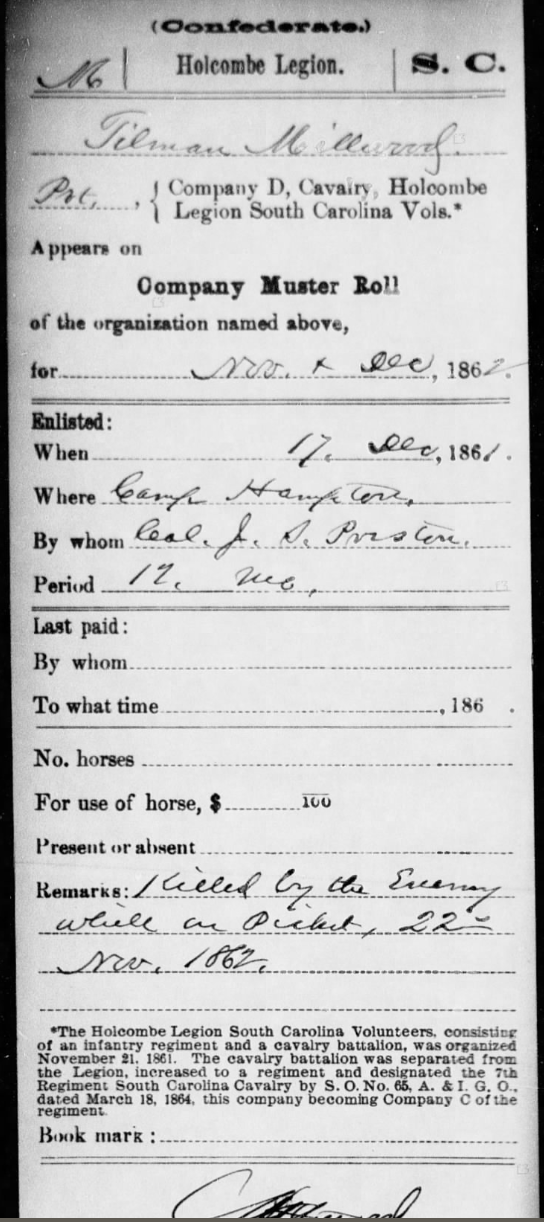 (Confederate.)
M | Holcombe Legion. | S. C.
Tilman Millwood.
Pvt., { Company D, Cavalry, Holcombe
Legion South Carolina Vols.*
Appears on
Company Muster Roll
of the organization named above,
for Nov. & Dec, 1862.
Enlisted:
When 17. Dec, 1861.
Where Camp Hampton,
By whom Col. J. S. Preston.
Period 12. mo,
Last paid:
By whom
To what time , 186 .
No. horses
For use of horse, $ 100
Present or absent
Remarks: Killed by the Enemy
while on Picket, 22
Nov. 1862.
*The Holcombe Legion South Carolina Volunteers, consisting
of an infantry regiment and a cavalry battalion, was organized
November 21, 1861. The cavalry battalion was separated from
the Legion, increased to a regiment and designated the 7th
Regiment South Carolina Cavalry by S. O. No. 65, A. & I. G. O.,
dated March 18, 1864, this company becoming Company C of the
regiment.
Book mark :